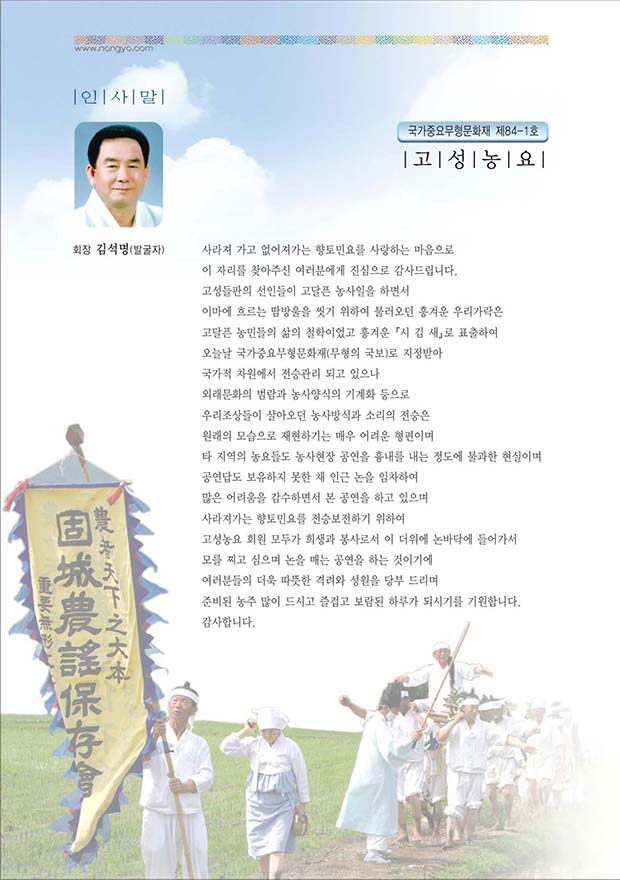 www.nongyo.com
인사말
국가중요무형문화재 제84-1호
고성농요
회장 김석명(발굴자)
사라져 가고 없어져가는 향토민요를 사랑하는 마음으로
이 자리를 찾아주신 여러분에게 진심으로 감사드립니다.
고성들판의 선인들이 고달픈 농사일을 하면서
이마에 흐르는 땀방울을 씻기 위하여 불러오던 흥겨운 우리가락은
고달픈 농민들의 삶의 철학이었고 흥겨운 『시 김 새』로 표출하여
오늘날 국가중요무형문화재(무형의 국보)로 지정받아
국가적 차원에서 전승관리 되고 있으나
외래문화의 범람과 농사양식의 기계화 등으로
우리조상들이 살아오던 농사방식과 소리의 전승은
원래의 모습으로 재현하기는 매우 어려운 형편이며
타 지역의 농요들도 농사현장 공연을 흉내를 내는 정도에 불과한 현실이며
공연답도 보유하지 못한 채 인근 논을 임차하여
많은 어려움을 감수하면서 본 공연을 하고 있으며
사라져가는 향토민요를 전승보전하기 위하여
고성농요 회원 모두가 희생과 봉사로서 이 더위에 논바닥에 들어가서
모를 찌고 심으며 논을 매는 공연을 하는 것이기에
여러분들의 더욱 따뜻한 격려와 성원을 당부 드리며
준비된 농주 많이 드시고 즐겁고 보람된 하루가 되시기를 기원합니다.
감사합니다.
農者天下之大本
固城農謠保存會
重要無形文